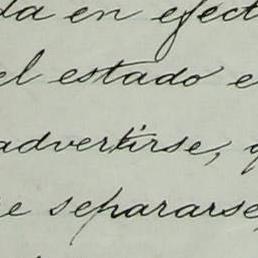 da en efect
el estado e
advertirse, y
e separarse,